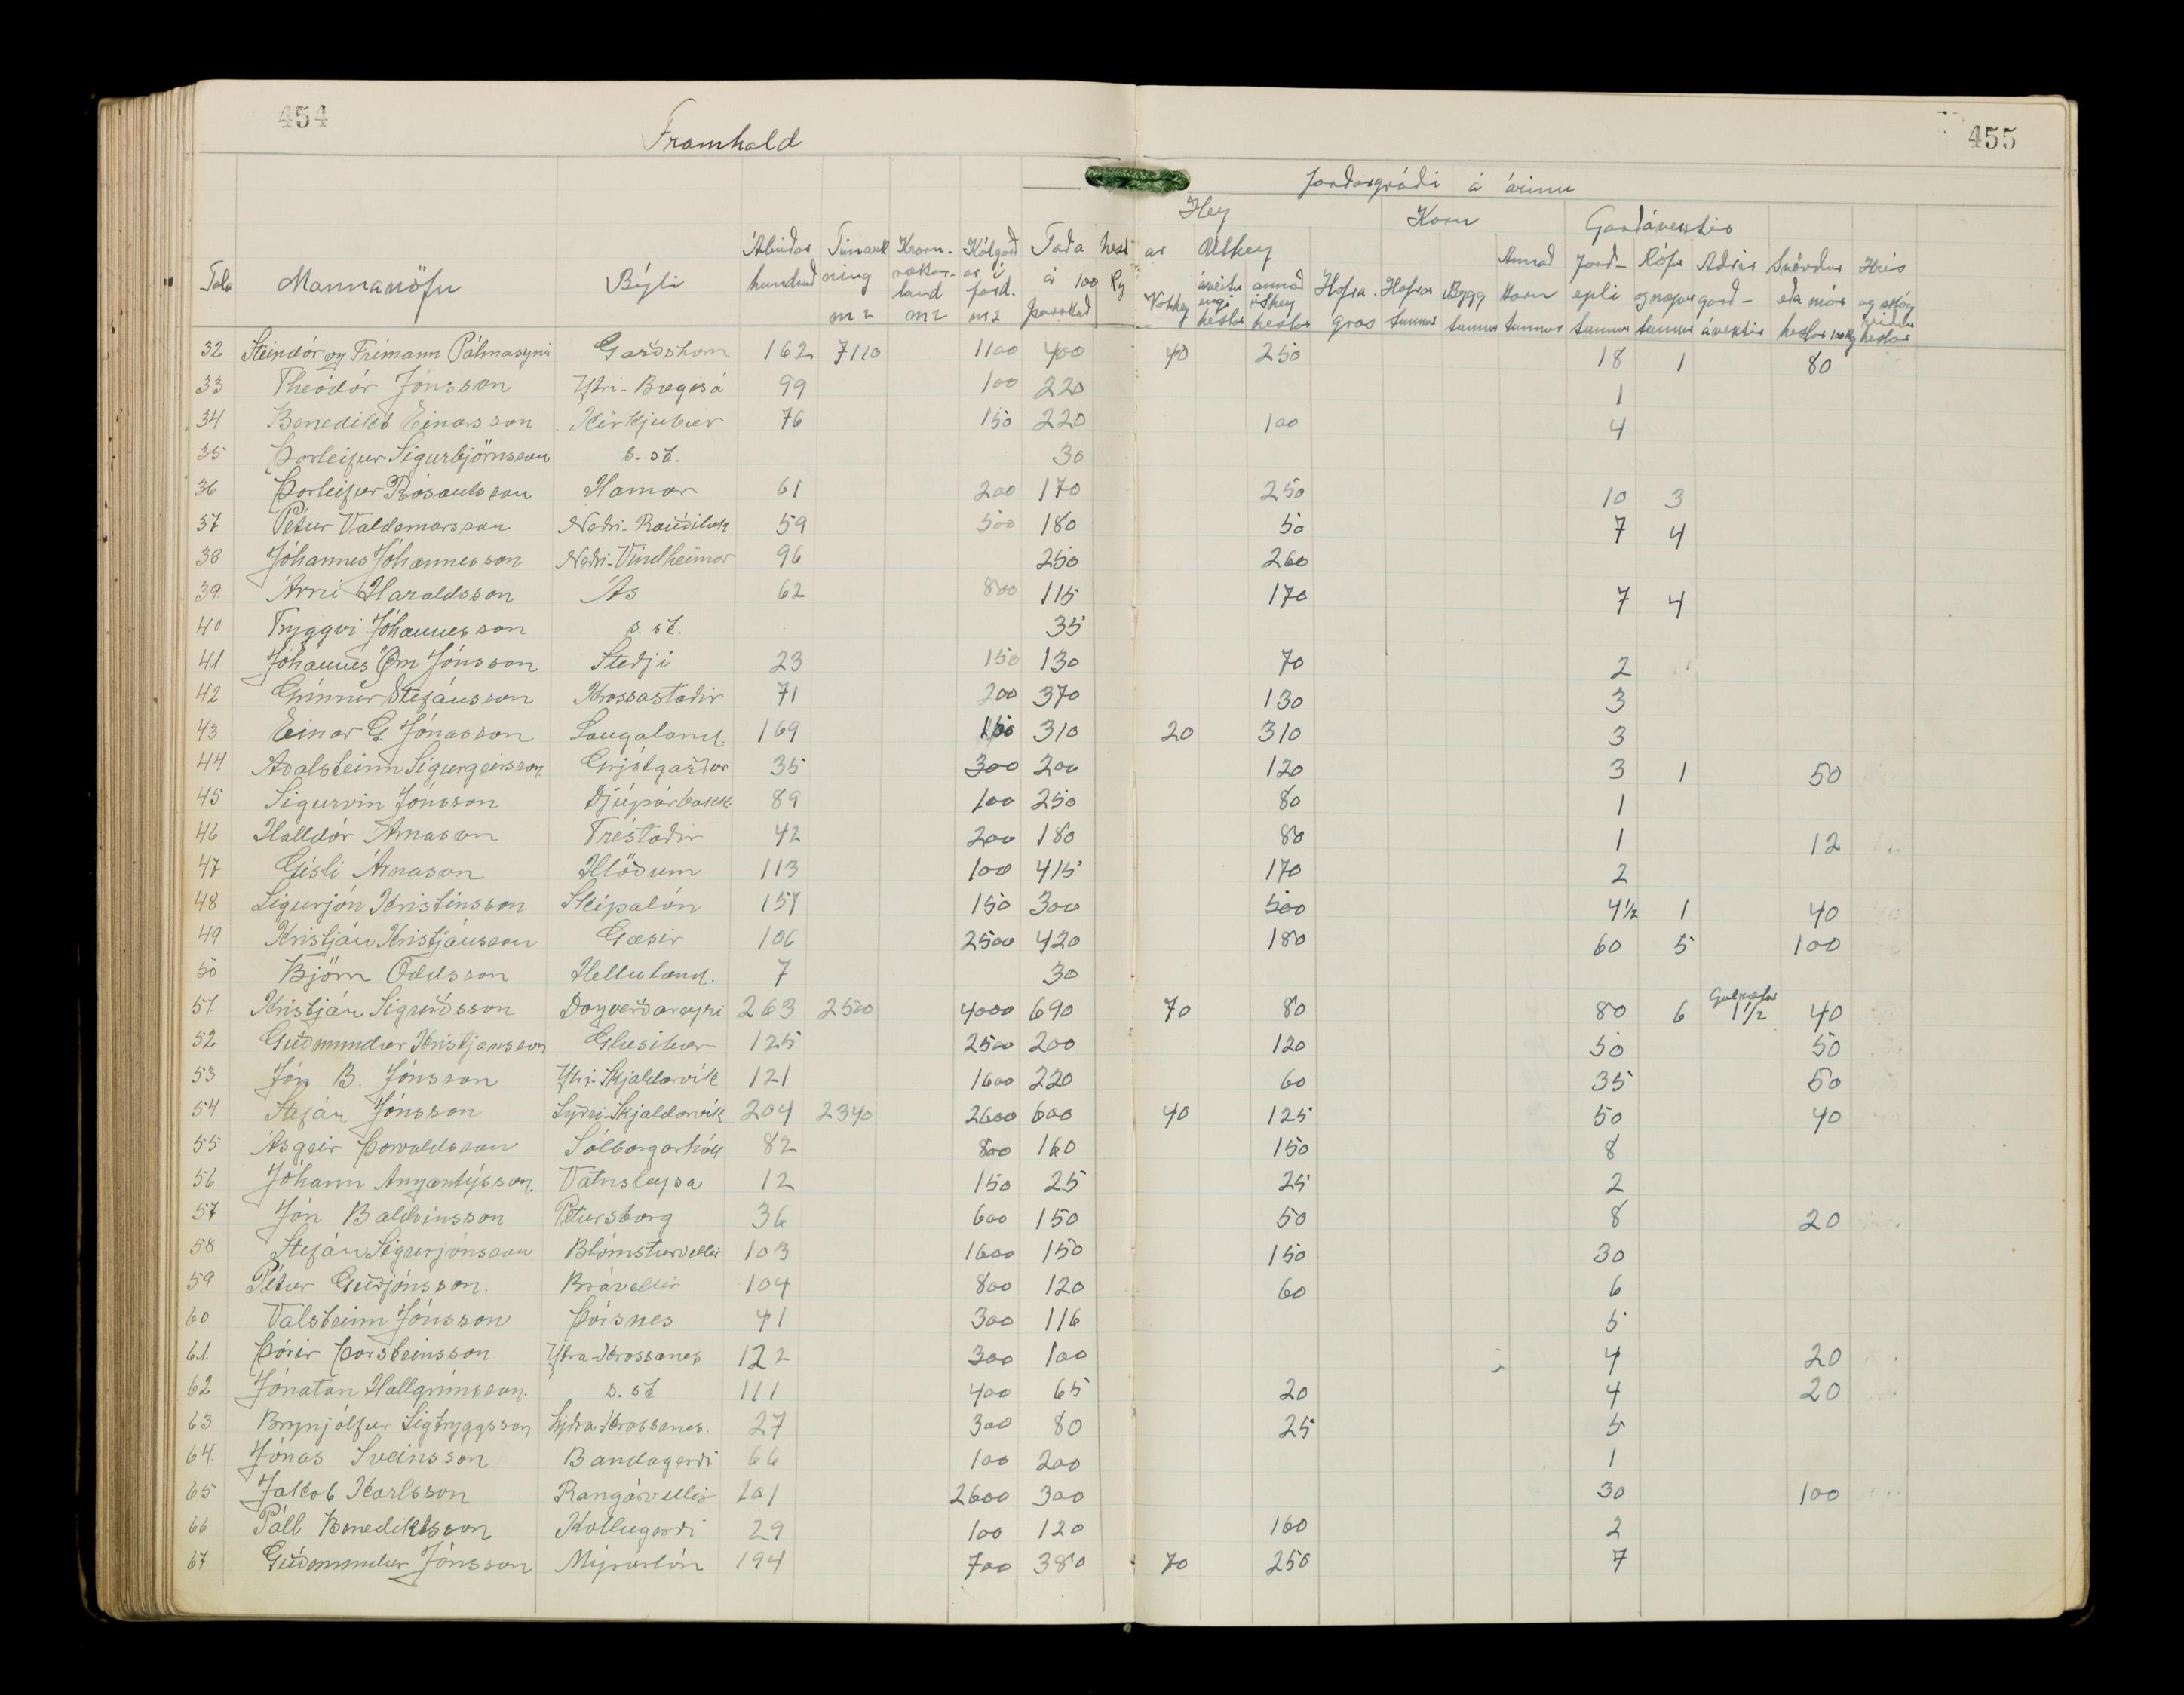 454
455
Framhald
Jarðargróði á árinu
Hey Korn Garðávextir
Tala Mannanöfn Býli Ábúðar hundruð Túnaukning m2 Kornræktarland m2 Kálgarðar í jörð. m2 Taða hestar á 100 kg þurrkað Vothey Úthey áveitu engi hestar annað úthey hestar Hafragras Hafrar tunnur Bygg tunnur Annað korn tunnur Jarðepli tunnur Rófur og næpur tunnur Aðrir garðávextir Svörður eða mór hestar 100 kg Hrís og skógviður hestar
32 Steindór og Frímann Pálmasynir Garðshorn 162 7110 1100 400 40 250 18 1 80
33 Theódór Jónsson Ytri-Bægisá 99 100 220 1
34 Benedikt Einarsson Kirkjubær 76 150 220 100 4
35 Þorleifur Sigurbjörnsson s. st. 30
36 Þorleifur Rósantsson Hamar 61 200 170 250 10 3
37 Pétur Valdemarsson Neðri-Rauðilæk 59 500 180 50 7 4
38 Jóhannes Jóhannesson Neðri-Vindheimar 96 250 260
39. Árni Haraldsson Ás 62 800 115 170 7 4
40 Tryggvi Jóhannesson s. st. 35
41 Jóhannes Örn Jónsson Steðji 23 150 130 70 2
42 Grímur Stefánsson Krossastaðir 71 200 370 130 3
43 Einar G. Jónasson Laugaland 169 150 310 20 310 3
44 Aðalsteinn Sigurgeirsson Grjótgarðar 35 300 200 120 3 1 50
45 Sigurvin Jónsson Djúpárbakk. 89 100 250 80 1
46 Halldór Árnason Tréstaðir 42 200 180 80 1 12
47 Gísli Árnason Hlöðum 113 100 415 170 2
48 Sigurjón Kristinsson Skipalón 157 150 300 500 4½ 1 40
49 Kristján Kristjánsson Gæsir 106 2500 420 180 60 5 100
50 Björn Oddsson Helluland. 7 30
51. Kristján Sigurðsson Dagverðareyri 263 2500 4000 690 70 80 80 6 Gulrófur 1½ 40
52 Guðmundur Kristjánsson Glæsibær 125 2500 200 120 50 50
53 Jón B. Jónsson Ytri-Skjaldarvík 121 1600 220 60 35 50
54 Stefán Jónsson Syðri-Skjaldarvík 204 2340 2600 600 40 125 50 40
55 Ásgeir Þorvaldsson Sólborgarhóll 82 800 160 150 8
56 Jóhann Angantýsson. Vatnsleysa 12 150 25 25 2
57 Jón Baldvinsson Pétursborg 36 600 150 50 8 20
58 Stefán Sigurjónsson Blómsturvellir 103 1600 150 150 30
59 Pétur Guðjónsson. Brávellir 104 800 120 60 6
60 Valsteinn Jónsson Þórsnes 41 300 116 5
61. Þórir Þorsteinsson Ytra-Krossanes 122 300 100 4 20
62 Jónatan Hallgrímsson. s. st 111 400 65 20 4 20
63 Brynjólfur Sigtryggsson Syðra Krossanes. 27 300 80 25 5
64. Jónas Sveinsson Bandagerði 66 100 200 1
65 Jakob Karlsson Rangárvellir 101 2600 300 30 100
66 Páll Benediktsson Kollugerði 29 100 120 160 2
67 Guðmundur Jónsson Mýrarlón 194 700 380 70 250 7